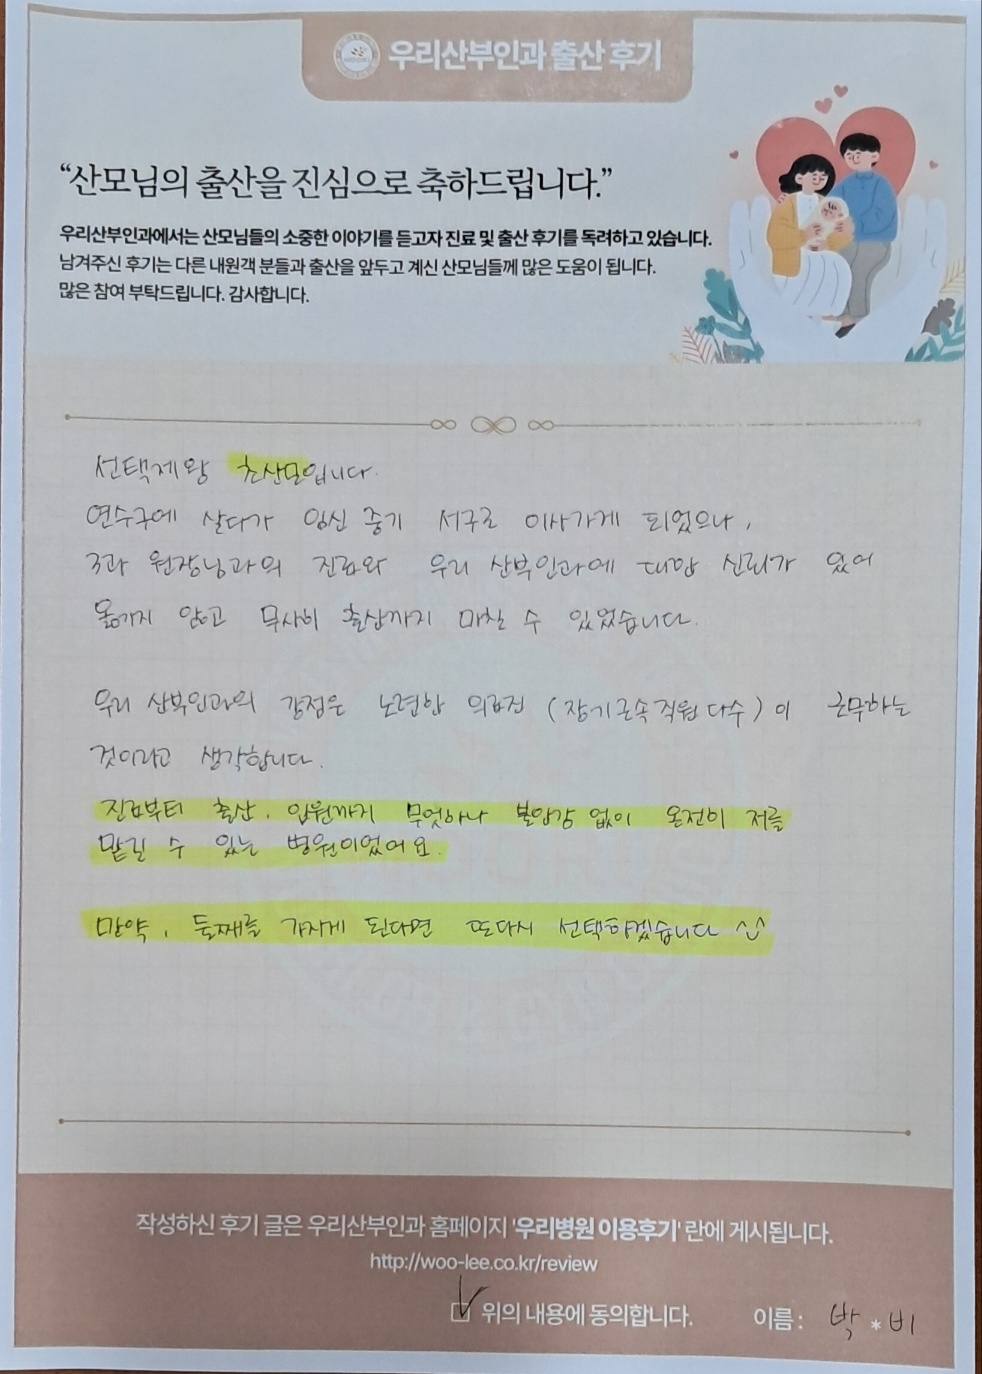 우리산부인과 출산 후기
“산모님의 출산을 진심으로 축하드립니다.”
우리산부인과에서는 산모님들의 소중한 이야기를 듣고자 진료 및 출산 후기를 독려하고 있습니다.
남겨주신 후기는 다른 내원객 분들과 출산을 앞두고 계신 산모님들께 많은 도움이 됩니다.
많은 참여 부탁드립니다. 감사합니다.
선택제왕 초산모입니다.
연수구에 살다가 임신 중기 서구로 이사가게 되었으나,
3과 원장님과의 진료와 우리 산부인과에 대한 신뢰가 있어
옮기지 않고 무사히 출산까지 마칠 수 있었습니다.
우리 산부인과의 강점은 노련한 의료진 (장기근속직원 다수) 이 근무하는
것이라고 생각합니다.
진료부터 출산, 입원까지 무엇하나 불안감 없이 온전히 저를
맡길 수 있는 병원이었어요.
만약, 둘째를 가지게 된다면 또다시 선택하겠습니다 ^^
작성하신 후기 글은 우리산부인과 홈페이지 '우리병원 이용후기' 란에 게시됩니다.
http://woo-lee.co.kr/review
위의 내용에 동의합니다. 이름 : 박 * 비